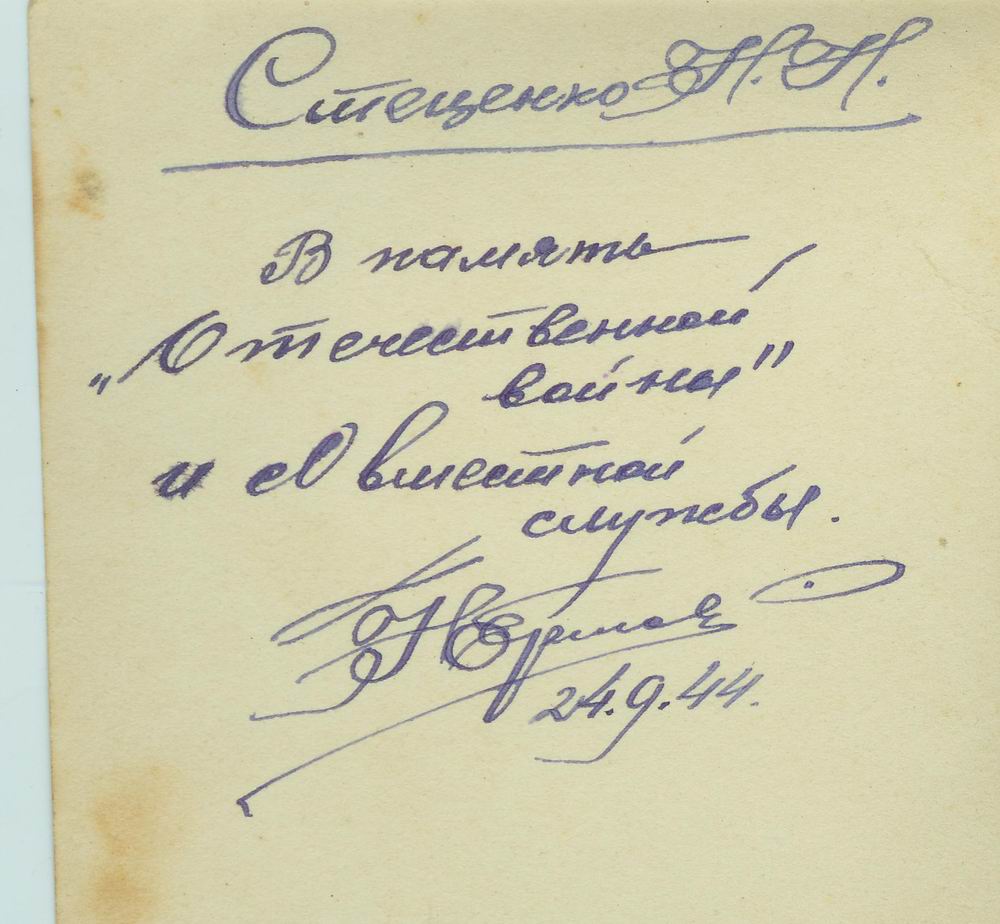 Стеценко Н. Н.
В память
„Отечественной
войны"
и совместной
службы.
24.9.44.